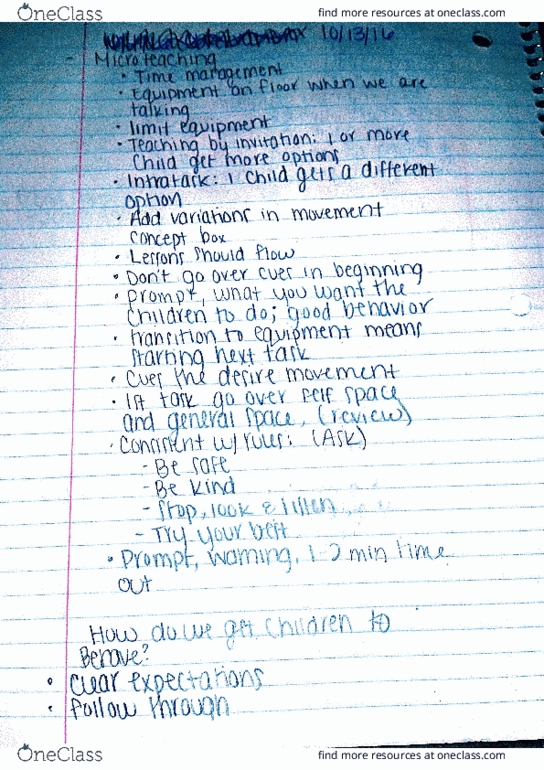 OneClass
find more resources at oneclass.com
10/13/16
- Microteaching
• Time management
• Equipment on floor when we are
talking
• limit equipment
• Teaching by invitation: 1 or more
Child get more options
• Intratask: 1 child gets a different
option
• Add variations in movement
concept box
• Lessons should flow
• Don't go over cues in beginning
• Prompt, what you want the
children to do; good behavior
• transition to equipment means
starting next task
• Cues the desire movement
• 1st task go over self space
and general space, (review)
• Consistent w/rules: (Ask)
- Be safe
- Be kind
- Stop, look & listen
- Try your best
• Prompt, warning, 1-2 min time
out
How do we get children to
Behave?
• clear expectations
• follow through
OneClass
find more resources at oneclass.com